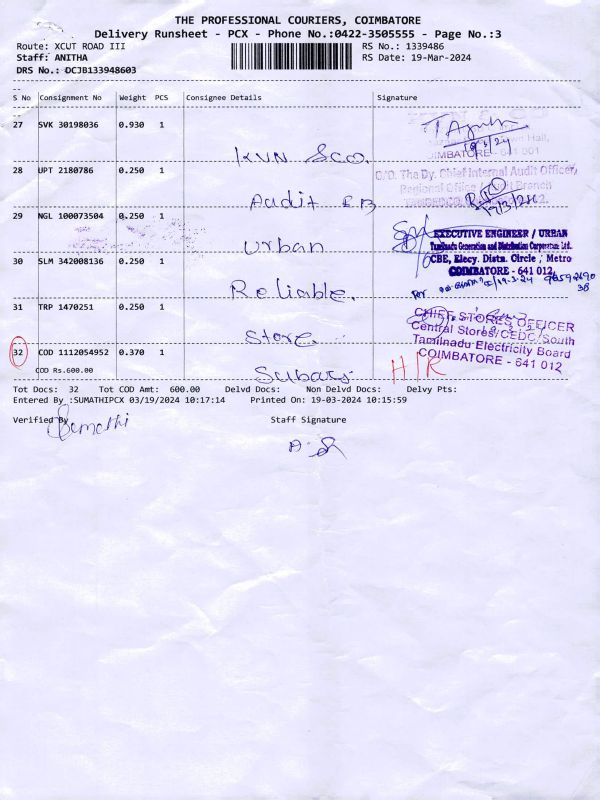 THE PROFESSIONAL COURIERS, COIMBATORE
Delivery Runsheet - PCX - Phone No.:0422-3505555 - Page No.:3
Route: XCUT ROAD III RS No.: 1339486
Staff: ANITHA RS Date: 19-Mar-2024
DRS No.: DCJB133948603
S No Consignment No Weight PCS Consignee Details Signature
27 SVK 30198036 0.930 1
Hall,
COIMBATORE - 641 001
KVN Sco.
28 UPT 2180786 0.250 1
O/O. The Dy. Chief Internal Audit Officer,
Regional Office Audit Branch
Audit EB
29 NGL 100073504 0.250 1
EXECUTIVE ENGINEER / URBAN
Tamilnadu Generation and Distribution Corporation Ltd.
CBE, Elecy. Distn. Circle / Metro
COIMBATORE - 641 012.
Urban
30 SLM 342008136 0.250 1
Reliable.
31 TRP 1470251 0.250 1
CHIEF STORES OFFICER
Central Stores/CEDC/South
Tamilnadu Electricity Board
COIMBATORE - 641 012
Store.
32 COD 1112054952 0.370 1
H/R
COD Rs.600.00
Subars
Tot Docs: 32 Tot COD Amt: 600.00 Delvd Docs: Non Delvd Docs: Delvy Pts:
Entered By :SUMATHIPCX 03/19/2024 10:17:14 Printed On: 19-03-2024 10:15:59
Verified By Staff Signature
Sumathi